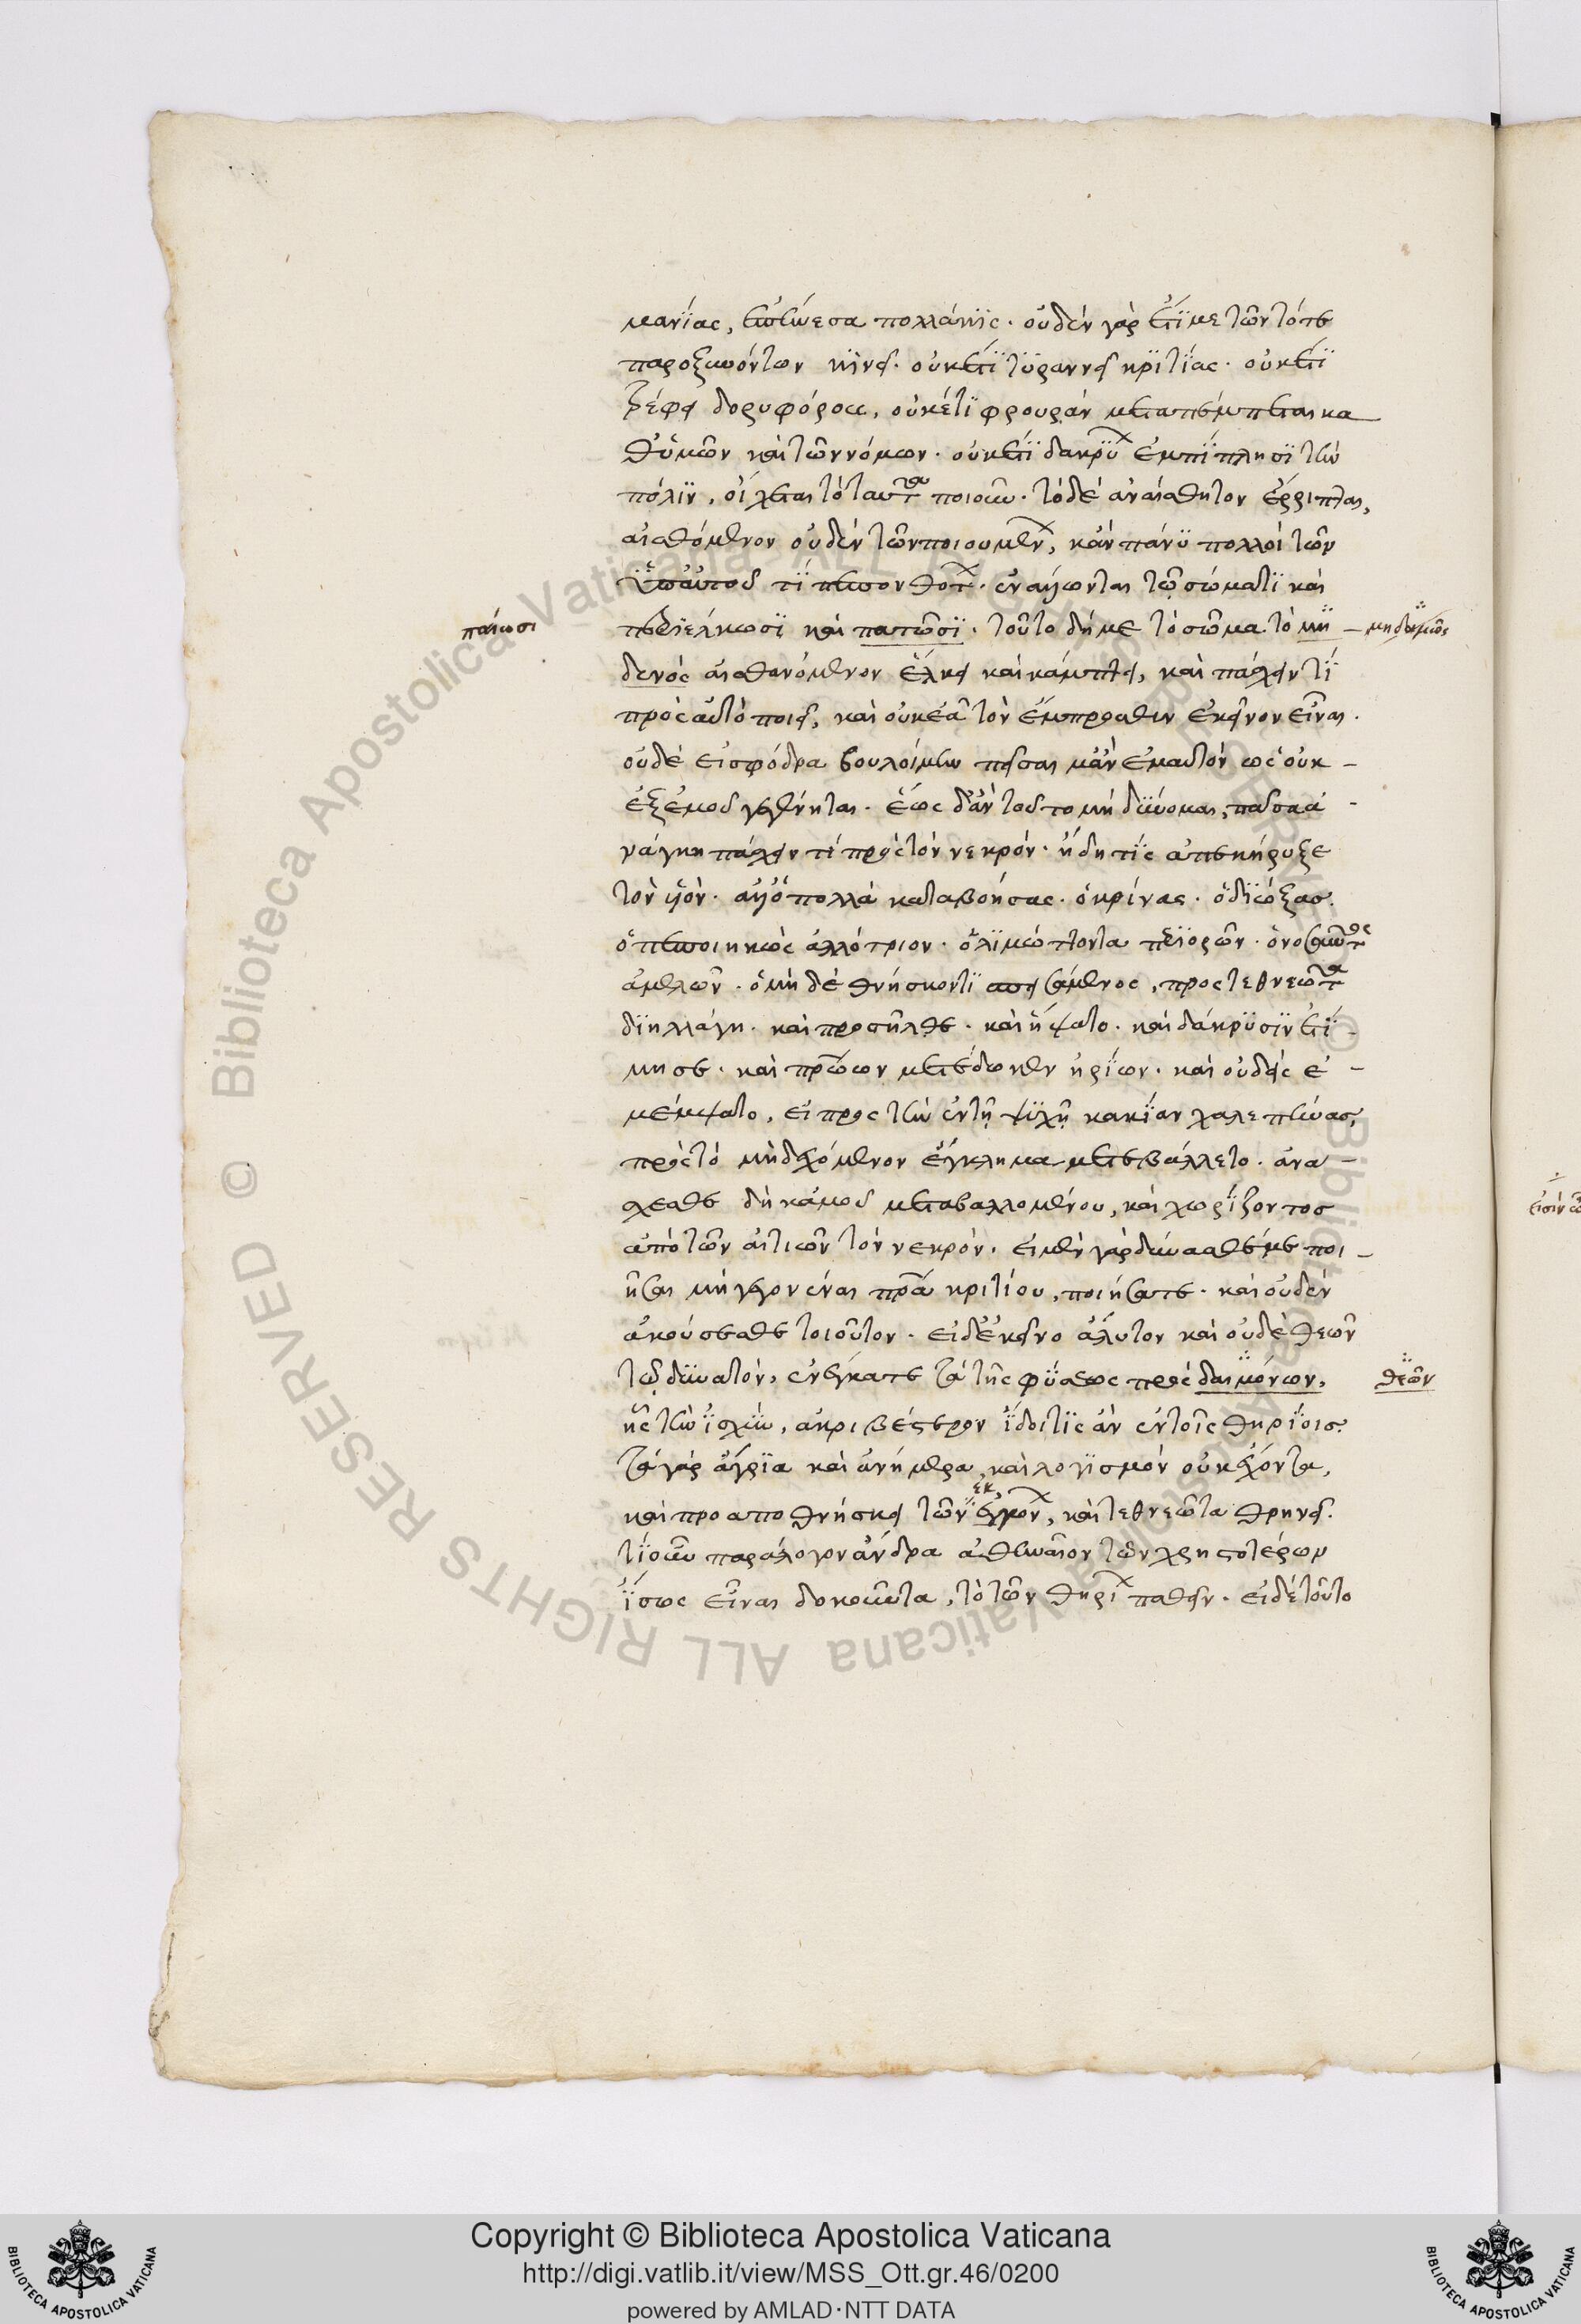 μανίας, ἐπῄνεσα πολλάκις. οὐδὲν γὰρ ἔτι με τῶν τότε
παροξυνόντων κινεῖ. οὐκέτι τυραννεῖ κριτίας. οὐκέτι
τρέφει δορυφόρους, οὐκέτι φρουρὰν μεταπέμπεται κα
θ᾽ ὑμῶν καὶ τῶν νόμων. οὐκέτι δακρύων ἐμπίπλησι τὴν
πόλιν, οἴχεται τὸ ταῦτα ποιοῦν. τὸ δὲ ἀναίσθητον ἔρριπται,
αἰσθόμενον οὐδὲν τῶν ποιουμένων, κἂν πάνυ πολλοὶ τῶν
ὑπ᾽ αὐτοῦ τι πεπονθότων. ἐναλλωνται τῷ σώματι καὶ
περιέλκωσι καὶ πατῶσι. τοῦτο δή με τὸ σῶμα τὸ μη
δενὸς αἰσθανόμενον ἕλκει καὶ κάμπτει, καὶ πάσχειν τι
πρὸς αὐτὸ ποιεῖ, καὶ οὐκ ἐᾷ τὸν ἔμπροσθεν ἐκεῖνον εἶναι.
οὐδὲ εἰ σφόδρα βουλοίμην πεῖσαι μ᾽ ἂν ἐμαυτὸν ὡς οὐκ
ἐξ ἐμοῦ γεγένηται. ἕως δ᾽ ἂν τοῦτο μὴ δύνωμαι, πᾶσα ἀ
νάγκη πάσχειν τι πρὸς τὸν νεκρόν. ἤδη τις ἀπεκήρυξε
τὸν υἱόν. ἀλλ᾽ ὁ πολλὰ καταβοήσας. ὁ κρίνας. ὁ διώξας.
ὁ πεποιηκὼς ἀλλότριον. ὁ λιμώττοντα περιορῶν. ὁ νοσοῦντος
ἀμελῶν. ὁ μηδὲ θνήσκοντι πεισάμενος, πρὸς τεθνεῶτα
διηλλάγη. καὶ προσῆλθε. καὶ ἥψατο. καὶ δάκρυσιν ἐτί
μησε. καὶ πατρῴων μετέδωκεν ἠρίων. καὶ οὐδεὶς ἐ
μέμψατο, εἰ πρὸς τὴν ἐν τῇ ψυχῇ κακίαν χαλεπήνας,
πρὸς τὸ μὴ δεχόμενον ἔγκλημα μετεβάλλετο. ἀνά
σχεσθε δὴ κἀμοῦ μεταβαλλομένου, καὶ χωρίζοντος
ἀπὸ τῶν αἰτιῶν τὸν νεκρόν. εἰ μὲν γὰρ δύνασθέ με ποι
ῆσαι μὴ γεγονέναι πατέρα κριτίου, ποιήσατε. καὶ οὐδὲν
ἀκούσεσθε τοιοῦτον. εἰ δ᾽ ἐκεῖνο ἄλυτον καὶ οὐδὲ θεῶν
τῳ δυνατόν, ἐνέγκατε τὰ τῆς φύσεως πρὸς δαιμόνων,
ἧς τὴν ἰσχὺν, ἀκριβέστερον ἴδοι τις ἂν ἐν τοῖς θηρίοις.
τὰ γὰρ ἄγρια καὶ ἀνήμερα, καὶ λογισμὸν οὐκ ἔχοντα,
καὶ προαποθνήσκει τῶν ἐκγόνων, καὶ τεθνεῶτα θρηνεῖ.
τί οὖν παράλογον ἄνδρα ἀθηναῖον τῶν χρηστοτέρων
ἴσως εἶναι δοκοῦντα, τὸ τῶν θηρίων παθεῖν. εἰ δὲ τοῦτο
παίωσι
μηδαμῶς
θεῶν
Copyright © Biblioteca Apostolica Vaticana
http://digi.vatlib.it/view/MSS_Ott.gr.46/0200
powered by AMLAD·NTT DATA